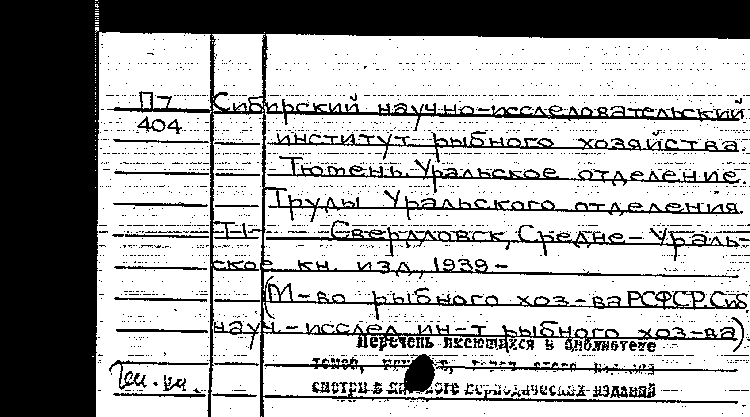 П7
404
Сибирский научно-исследовательский
институт рыбного хозяйства.
Тюмень. Уральское отделение.
Труды Уральского отделения.
Т-1- Свердловск, Средне-Ураль-
ское кн. изд., 1939-
(М-во рыбного хоз-ва РСФСР. Сиб.
науч.-исслед. ин-т рыбного хоз-ва)
Перечень имеющихся в библиотеке
томов, этого издания
смотри в периодических изданий